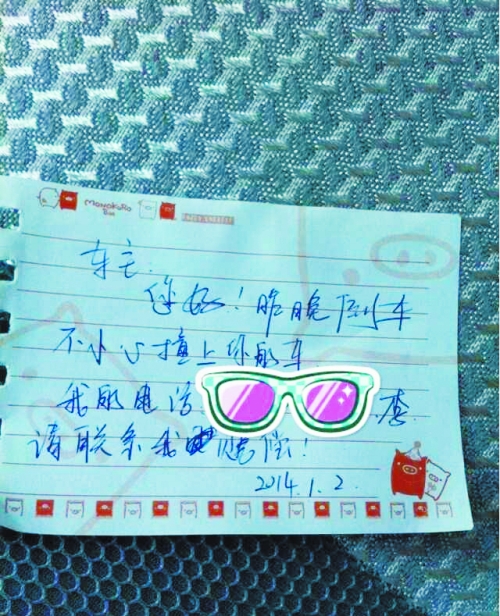 MonoKuRo
Boo
车主:
你好!昨晚倒车
不小心撞上你的车
我的电话 李
请联系我 赔偿!
2014.1.2.